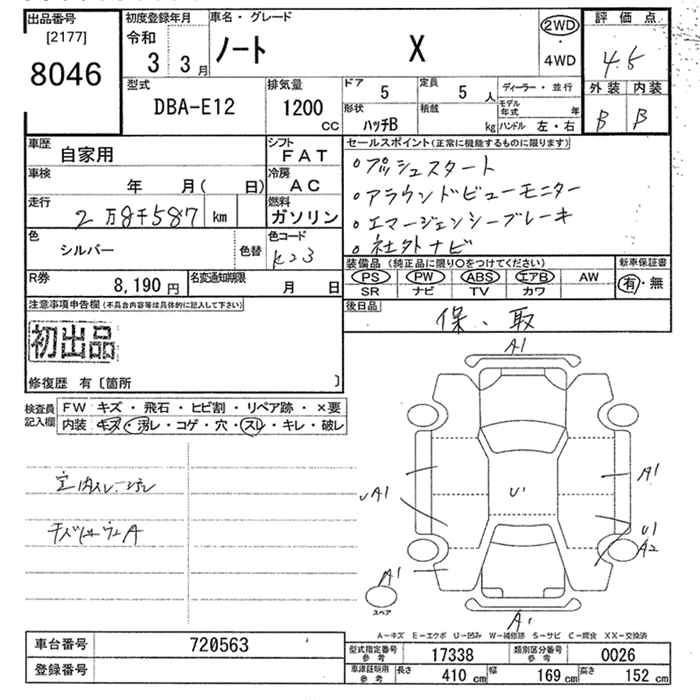 出品番号
[2177]
8046
初度登録年月
令和
3 3月
車名・グレード
ノート X
2WD
・
4WD
評価点
4.5
外装 内装
B B
型式
DBA-E12
排気量
1200
CC
ドア
5
定員
5 人
形状
ハッチB
積載
kg
ディーラー・並行
モデル年式 年
ハンドル 左・右
車歴
自家用
シフト
FAT
車検
年 月( 日)
冷房
AC
走行
2万8千587 km
燃料
ガソリン
色
シルバー
色替
色コード
K23
R券
8,190 円
名変通知期限
月 日
セールスポイント(正常に機能するものに限ります)
・プッシュスタート
・アラウンドビューモニター
・エマージェンシーブレーキ
・社外ナビ
装備品(純正品に限り○をつけてください)
PS PW ABS エアB AW
SR ナビ TV カワ
新車保証書
有・無
後日品
保、取
注意事項申告欄(不具合内容等は具体的に記入して下さい)
初出品
修復歴 有〔箇所 〕
検査員記入欄
FW キズ・飛石・ヒビ割・リペア跡・×要
内装 キズ・汚レ・コゲ・穴・スレ・キレ・破レ
A1
A1
A1
U1
U1
A2
A1
A1
スペア
A-キズ E-エクボ U-凹み W-補修跡 S-サビ C-腐食 XX-交換済
車台番号 720563
登録番号
型式指定番号 参考 17338
類別区分番号 参考 0026
車庫証明用 参考 長さ 410 cm 幅 169 cm 高さ 152 cm